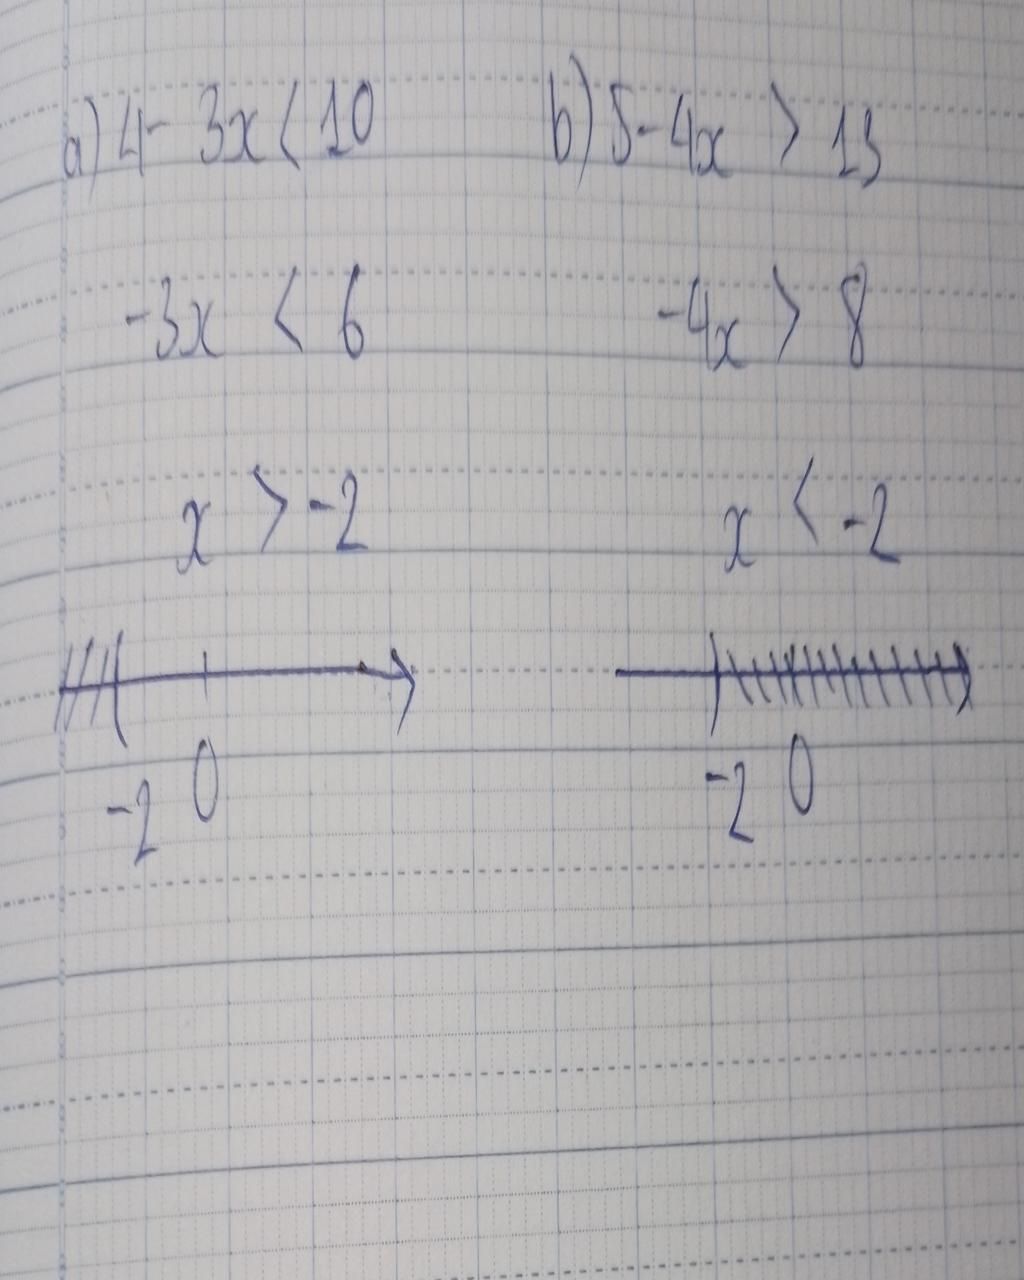 a) 4 - 3x < 10
-3x < 6
x > -2
-2 0
b) 5 - 4x > 13
-4x > 8
x < -2
-2 0